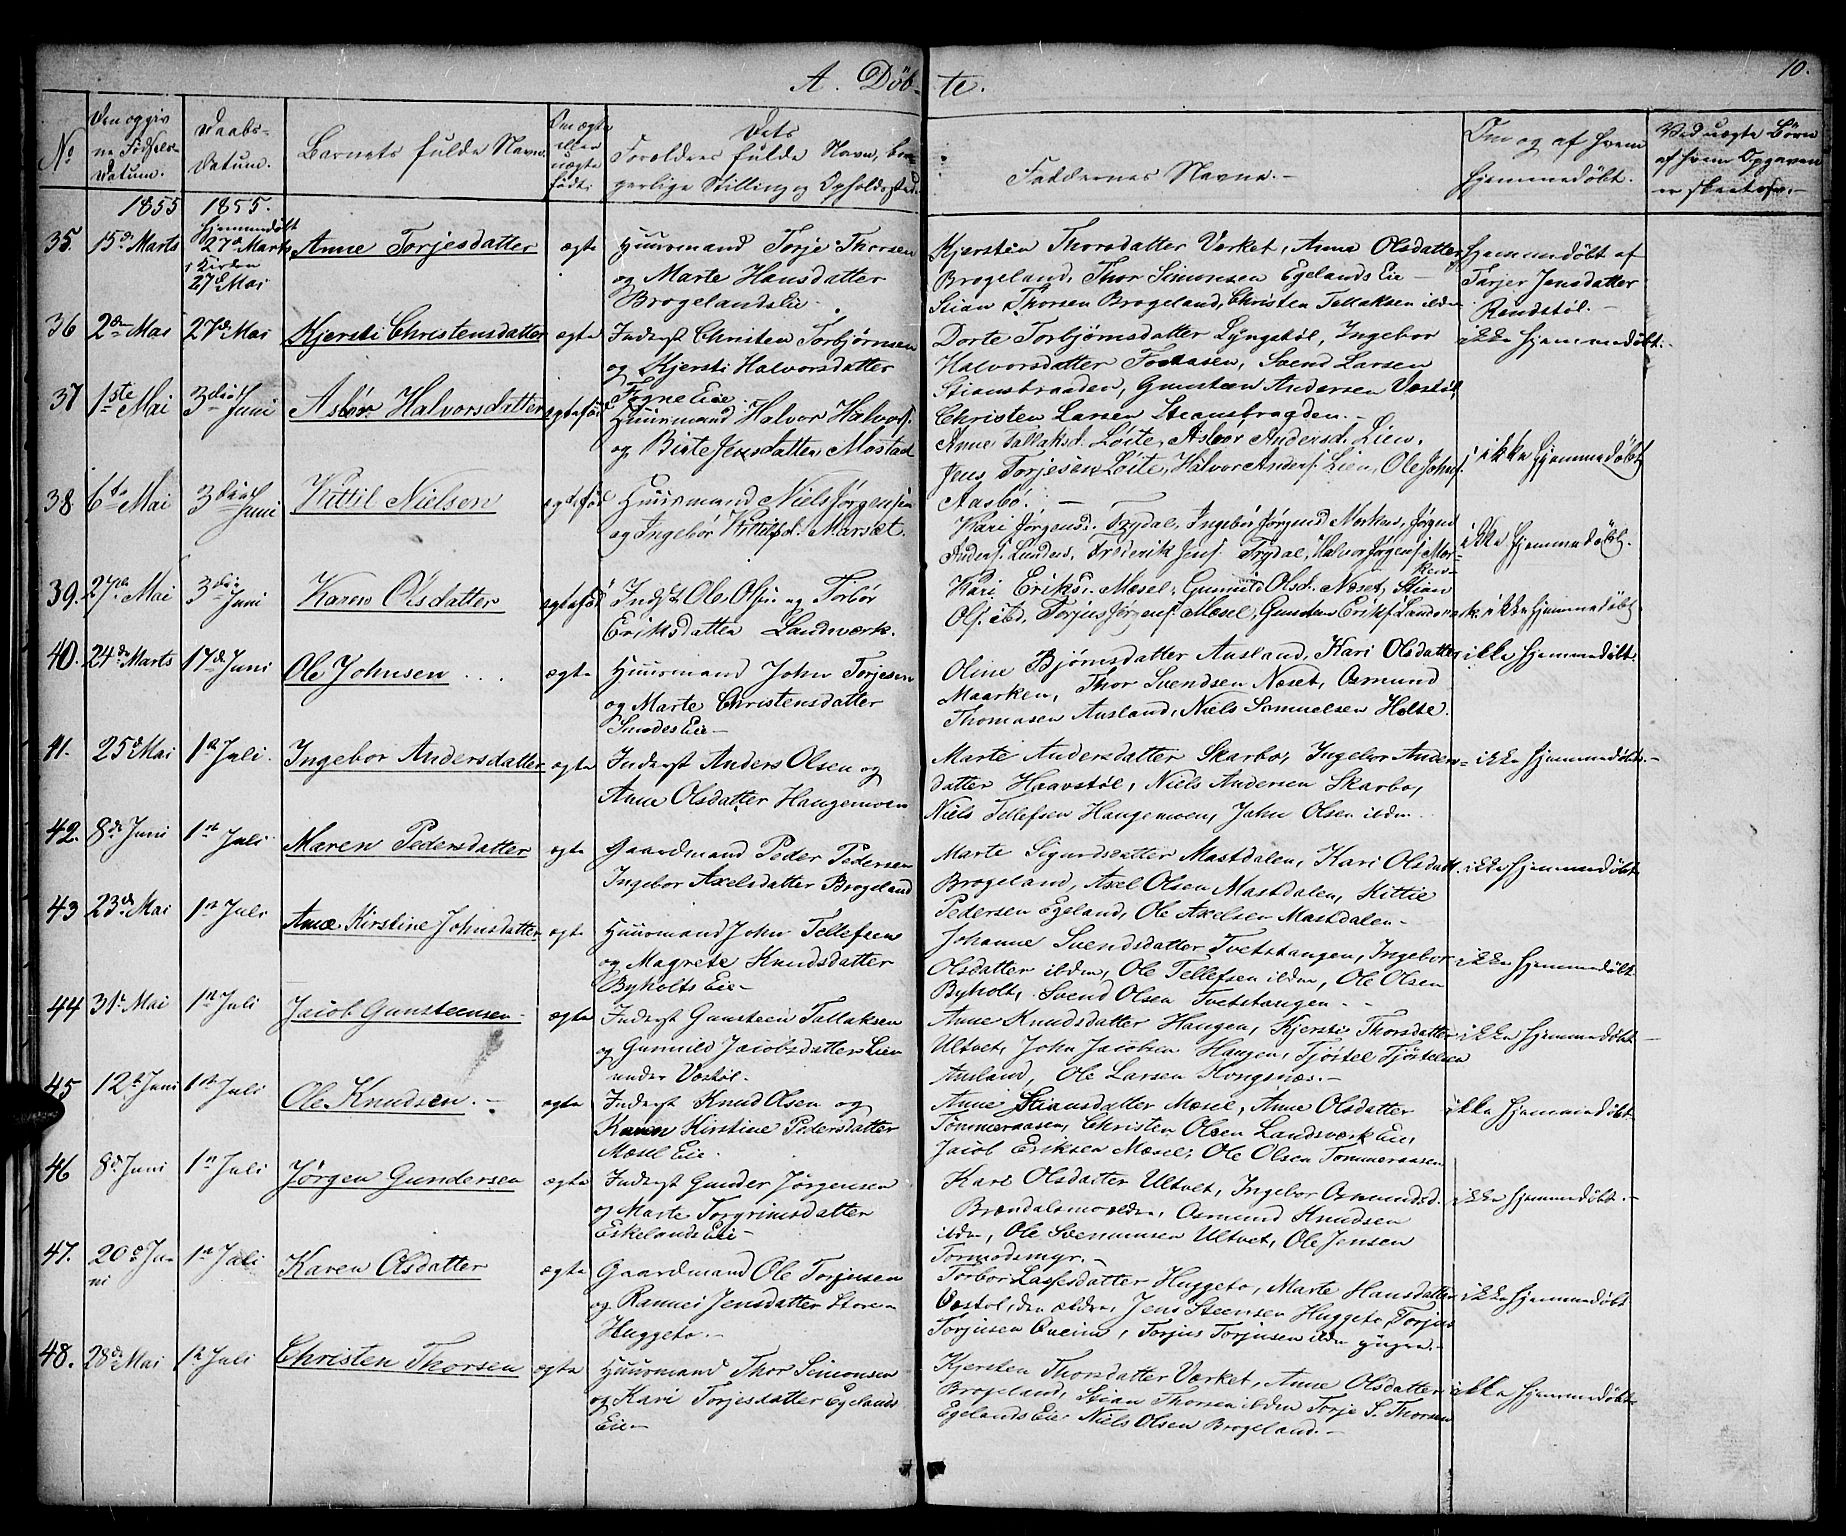 A. Döb- te.
10.
No
Den opgivne Fødsels Datum.
Daabs-Datum.
Barnets fulde Navn.
Om ægte eller uægte født.
Dets Forældres fulde Navn, borgerlige Stilling og Opholdssted.
Faddernes Navne.-
Om og af hvem hjemmedøbt.
Ved uægte Børn af hvem Opgaven er skeet &c.-
1855 1855.
35. 15d Marts Hjemmedøbt 27d Marts i Kirken 27d Mai Anne Torjesdatter ægte
Huusmand Torje Thorsen
og Marte Hansdatter
Brøgelands Eie.
Kjersten Thorsdatter Verket, Anne Olsdatter
Brøgeland, Thor Simonsen Egelands Eie
Stian Thorsen Brøgeland, Christen Tellaksen ildem
Hjemmedøbt af
Tarjer Jensdatter
Rendstøl.-
36 2den Mai 27de Mai Kjersti Christensdatter ægte
Inderst Christen Torbjørnsen
og Kjersti Halvorsdatter
Fogne Eie.
Dorte Torbjørnsdatter Lyngstøl, Ingebor
Halvorsdatter Fosaasen, Svend Larsen
Stiansbraaden, Gunsteen Andersen Vestøl,
Christen Larsen Steansbragden.-
ikke hjemmedøbt.-
37 1ste Mai 3die Juni Asbør Halvorsdatter ægtefød
Huusmand Halvor Halvors.
og Birte Jensdatter Mostad
Anne Tallaksd. Løite, Asbør Andersd. Lien,
Jens Torjesen Løite, Halvor Anders. Lien, Ole Johns.
Aasbø. -
ikke hjemmedøbt
38 6te Mai 3die Juni Kittil Nielsen ægtefød
Huusmand Niels Jørgensen
og Ingebør Kittilsd. Marsæt.
Kari Jørgensd. Trydal, Ingebør Jørgensd Morken, Jørgen
Anders. Lunden, Frederik Jens. Trydal, Halvor Jørgens. Morken
ikke hjemmedøbt.
39. 27de Mai 3die Juni Karen Olsdatter ægtefød
Indst. Ole Ols. og Torbør
Eriksdatter Landværk.
Kari Eriksd. Mæsel, Gunnild Olsd. Næset, Stian
Ols. ibd, Torjus Jørgens. Mæsel, Gunder Eriks. Landværk.
ikke hjemmedøbt
40. 24de Marts 17de Juni Ole Johnsen ægte
Huusmand John Torjesen
og Marte Christensdatter
Sundes Eie-
Oline Bjørnsdatter Ausland, Kari Olsdatter
Maarken, Thor Svendsen Næset, Osmund
Thomasen Ausland, Niels Samuelsen Holte.
ikke hjemmedøbt
41. 25d Mai 1st Juli. Ingebor Andersdatter ægte
Inderst Anders Olsen og
Anne Olsdatter Haugemoen
Marte Andersdatter Skarbo, Ingebor Anders-
datter Haavstøl, Niels Andersen Skarbo,
Niels Tellefsen Haugemoen, John Olsen ildem
ikke hjemmedøbt.-
42. 8de Juni 1st Juli Maren Pedersdatter ægte
Gaardmand Peder Pedersen
Ingebor Axelsdatter Brøgeland
Marte Sigurdsdatter Mastdalen, Kari Olsdatt.
Brøgeland, Axel Olsen Mastdalen, Kittil
Pedersen Egeland, Ole Axelsen Mastdalen-
ikke hjemmedøbt
43 23de Mai 1st Juli Anne Kirstine Johnsdatter ægte
Huusmand John Tellefsen
og Magrete Knudsdatter
Byholts Eie-
Johanne Svendsdatter Tvetstangen, Ingebor
Olsdatter ildem, Ole Tellefsen ildem, Ole Olsen
Byholt, Svend Olsen Tvetstangen - -
ikke hjemmedøbt
44 31t Mai 1st Juli Jacob Gunsteensen- ægte
Inderst Gunsteen Tallaksen
og Gunnild Jacobsdatter Lien
under Vestøl.
Anne Knudsdatter Haugen, Kjersti Thorsdatter
Ultvet, John Jacobsen Haugen, Tjøstel Tjøstelsen
Ausland, Ole Larsen Kongsnæs.-
ikke hjemmedøbt
45 12te Juni 1st Juli Ole Knudsen.- ægte
Inderst Knud Olsen og
Karen Kirstine Pedersdatter
Mæsel Eie.
Anne Stiansdatter Mæsel, Anne Olsdatter
Tømmeraasen, Christen Olsen Landsværk Eie,
Jacob Eriksen Mæsel, Ole Olsen Tømmeraasen
ikke hjemmedøbt
46 8de Juni 1st Juli Jørgen Gundersen ægte
Inderst Gunder Jørgensen
og Marte Torgrimsdatter
Eskelands Eie-
Kari Olsdatter Ultvet, Ingebor Osmundsd.
Brændalsmo ildem, Osmund Knudsen
ildem, Ole Svenumsen Ultvet, Ole Jensen
Tormodsmyr.-
ikke hjemmedøbt.-
47. 20de Juni 1st Juli Karen Olsdatter ægte
Gaardmand Ole Torjusen
og Rannei Jensdatter Store
Huggeto.-
Torbor Lassesdatter Huggeto, Marte Hansdatter
Vestøl, den ældre, Jens Steensen Huggeto, Torjus
Torjusen Oveim, Torjus Torjusen ildem yngre.-
ikke hjemmedøbt
48. 28de Mai 1st Juli Christen Thorsen ægte
Huusmand Thor Simonsen
og Kari Torjesdatter Egelands
Eie-
Kjersten Thorsdatter Verket, Anne Olsdatter
Brøgeland, Stian Thorsen ildem Torje S. Thorsen
Egelands Eie, Niels Olsen Brøgeland.-
ikke hjemmedøbt-